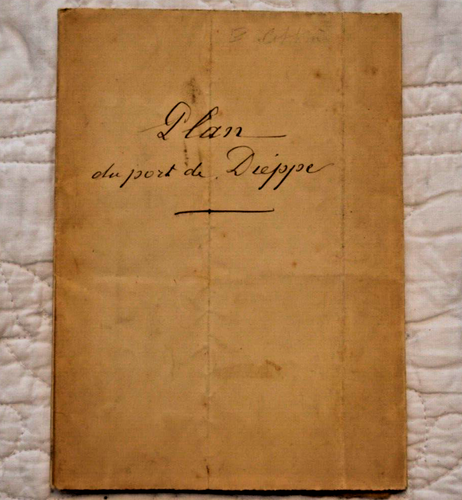 Plan
du port de Diéppe